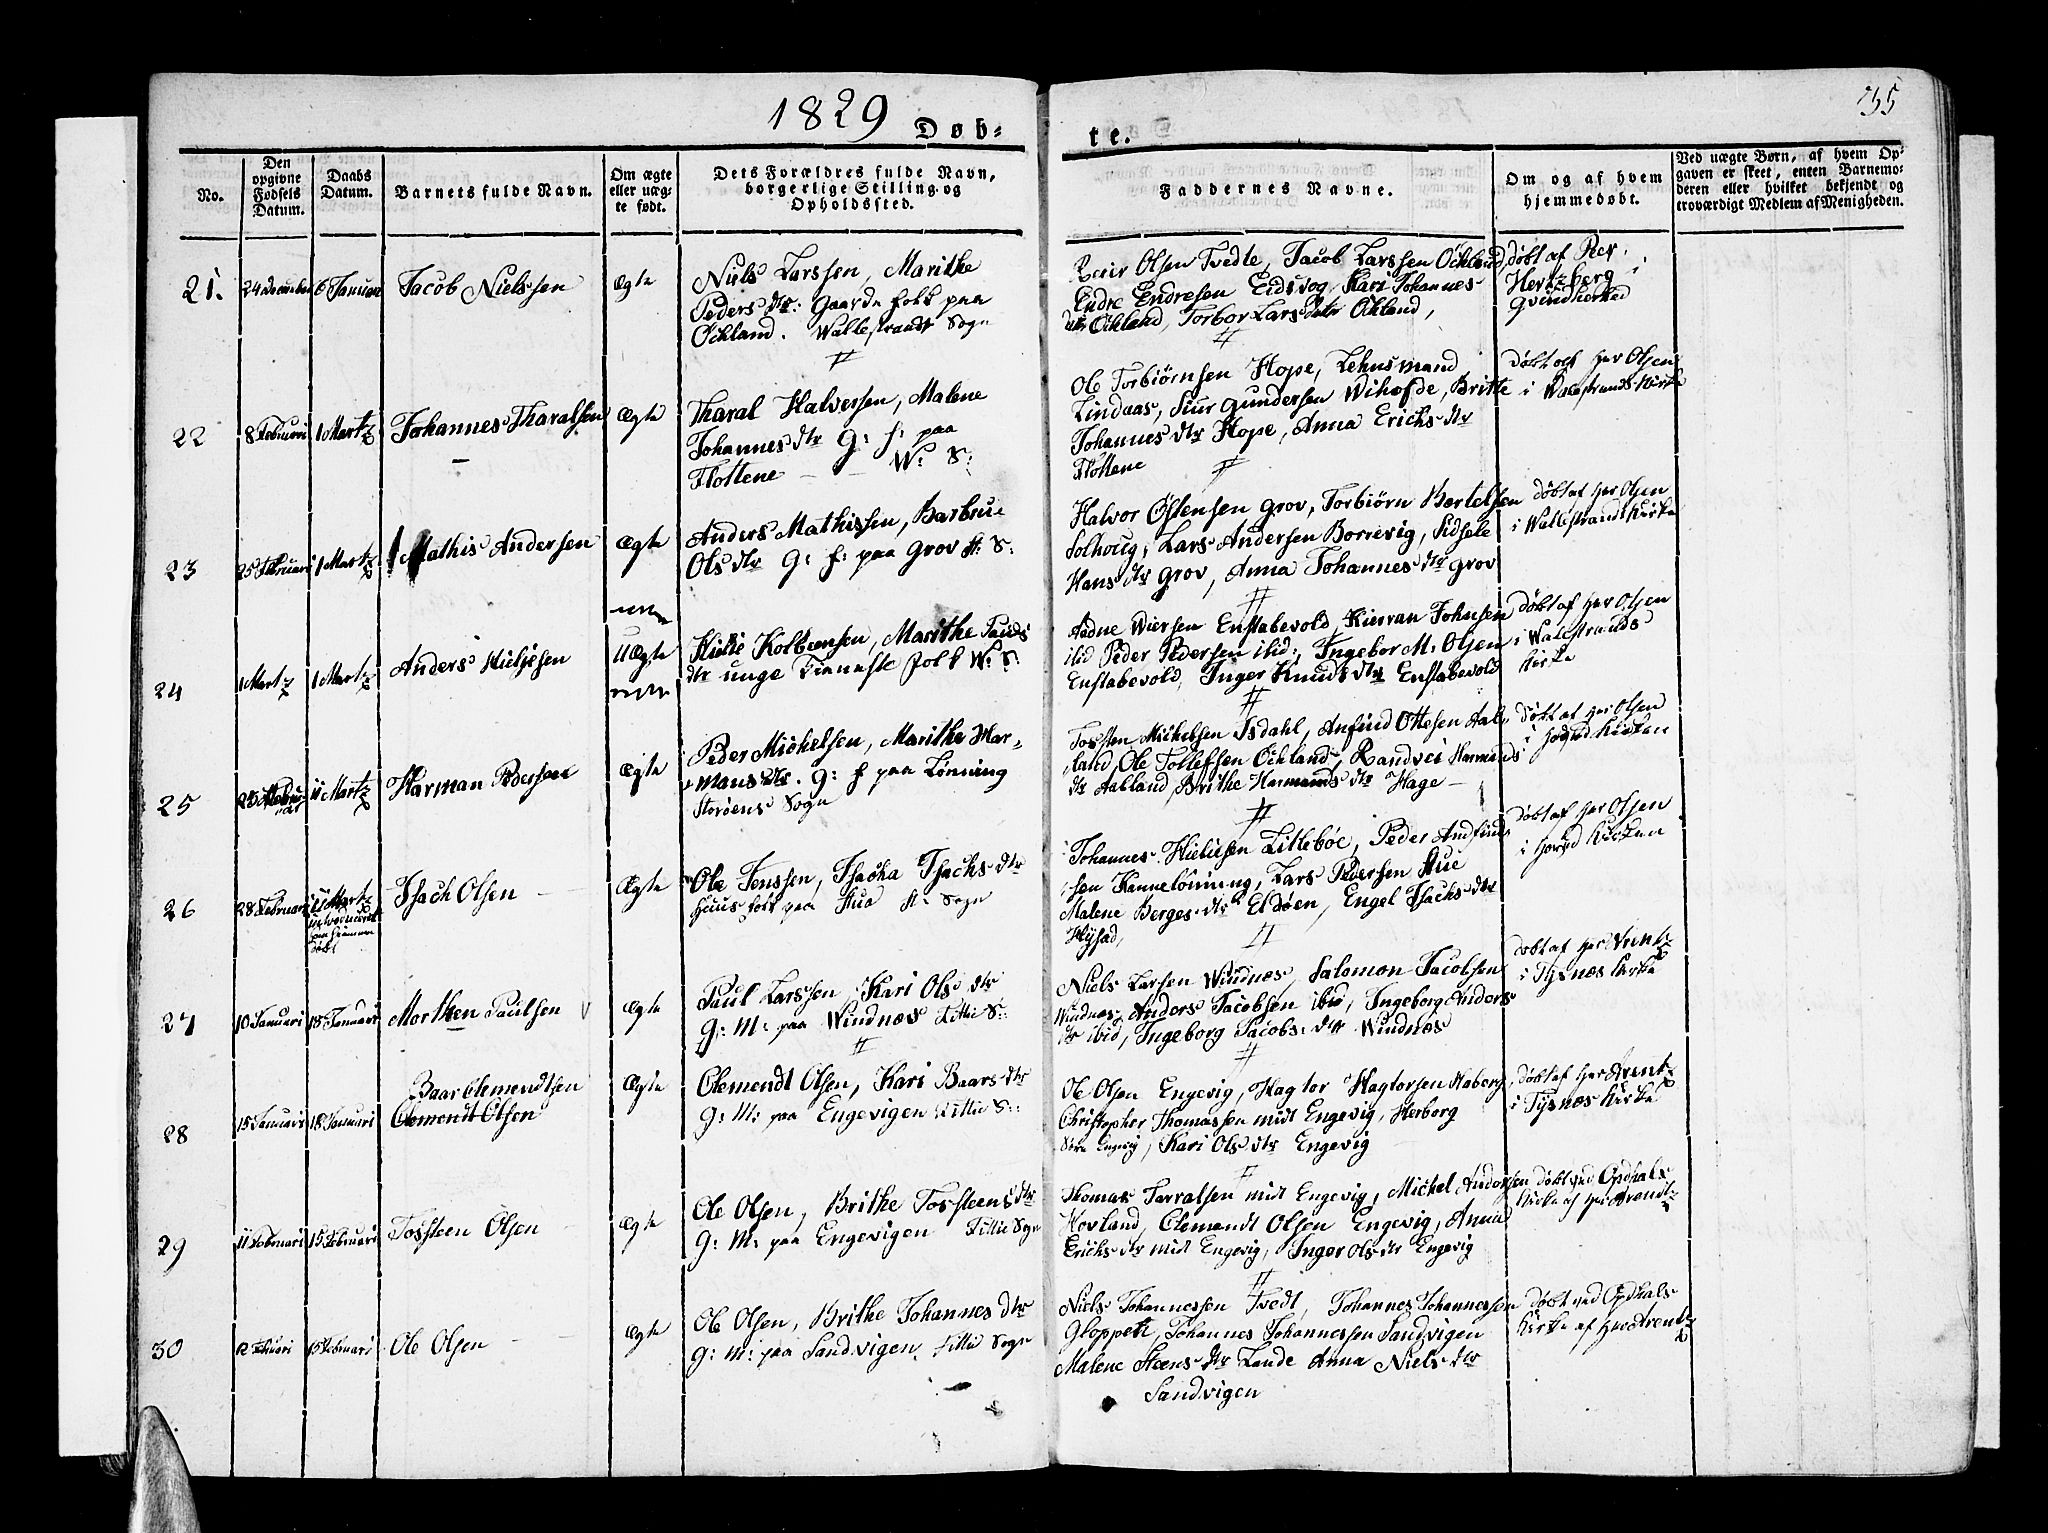 1829
Døb-
te.
No.
Den opgivne Fødsels Datum.
Daabs Datum.
Barnets fulde Navn.
Om ægte eller uæg-te født.
Dets Forældres fulde Navn, borgerlige Stilling og Opholdssted.
Faddernes Navne.
Om og af hvem hjemmedøbt.
Ved uægte Børn, af hvem Op-
gaven er skeet, enten Barnemo-
deren eller hvilket bekjendt og
troværdigt Medlem af Menigheden.
21. 24 December 6 Januar Jacob Nielssen Ægte
Niels Larssen, Marithe
Peders dtr: Gaarde folk paa
Öckland. Wallestrandt Sogn
Olsen Tvedte, Jacob Larssen Öckland,
Endre Endresen Eidsvog, Kari Johannes
dtr Öckland, Torbor Lars dtr Öckland,
døbt af
Hertzberg i
Qvindherred
22 8 Februari 1 Martz Johannes Tharalsen Ægte
Tharal Halversen, Malene
Johannes dtr G: f: paa
Flottene W: S:
Ole Torbiörnsen Hope, Lehnsmand
Lindaas, Siur Gundersen Wihofde, Britte
Johannes dtr Hope, Anna Erichs dtr
Flottene
Døbt af Her Olsen
i Walestrands Kirke
23 25 Februari 1 Martz Mathis Andersen Ægte
Anders Mathissen, Barbrue
Ols dtr G: f: paa Grov S:
Halvor Østensen Grov, Torbiörn Bertelsen
Solhoug, Lars Andersen Borrevig, Sidsele
Hans dtr Grov, Anna Johannes dtr Grov
døbt af Her Olsen
i Wallestrandt Kirke
24 1 Martz 1 Martz Anders Kieljesen UÆgte
Kolbeensen, Marithe
dtr unge Tieneste folk W: S:
Aadne Wiersen Enstabevold, Kierran Johnsen
ibid Peder Pedersen ibid:, Ingebor M: Olsen
Enstabevold, Inger Knuds dtr Enstabevold
døbt af Her Olsen
i Walestrands
Kirke
25 11 Martz Harman Pedersen Ægte
Peder Michelsen, Marithe Har-
mans dtr. G: f paa Lönning
Storöens Sogn
Tosten Mickelsen Isdahl, Anfind Ottesen Aal-
land, Ole Tollefsen Öckland, Randvei Harmands
dtr Aalland, Brithe Harmands dtr Hage
døbt af Her Olsen
i Kirken
26 28 Februari 11 Martz Isach Olsen Ægte
Ole Jenssen, Isacha Isachs dtr
Huus folk paa Sogn
Johannes Lillebøe, Peder Andfinds
sen Kannelönning, Lars Pedersen
Malene Berges dtr Eldøen, Engel Isachs dtr
Hysad,
døbt af Her Olsen
i Kirken
27 10 Januari 18 Januari Morthen Paulsen Ægte
Paul Larssen, Kari Ols dtr
G: M: paa Windnæs Fittie S:
Niels Larsen Windnæs, Salomon Jacobsen
Windnæs, Anders Jacobsen ibid, Ingeborg Anders
dtr ibid, Ingeborg Jacobs: dtr Windnæs
døbt af Her Arentz
i Tysnæs Kirke
28 15 Januari 18 Januari Baar Clemendtsen
Clemendt Olsen
Ægte
Clemendt Olsen, Kari Baars dtr
G: M: paa Engevigen Fittie S:
Ole Olsen Engevig, Hagtor Hagtorsen Haberg,
Christopher Thomassen midt Engevig, Herborg
Engevig, Kari Ols dtr Engevig
døbt af Her Arentz
i Tysnæs Kirke
29 11 Februari 15 Februari Tossteen Olsen Ægte
Ole Olsen, Brithe Tossteens dtr
G: M: paa Engevigen Fittie Sogn
Thomas Tarralsen midt Engevig, Michel Andersen
Hovland, Clemendt Olsen Engevig, Anna
Erichs dtr midt Engevig, Inger Ols dtr Engevig
døbt ved Opdals
Kirke af Her Arendtz
30 15 Februari Ole Olsen Ægte
Ole Olsen, Brithe Johannes dtr
G: M: paa Sandvigen. Fittie Sogn
Niels Johannessen Tvedt, Johannes Johannessen
Gloppeh, Johannes Johannessen Sandvigen
Malene Steens dtr Lande Anna Niels dtr
Sandvigen
døbt ved Opdals
Kirke af Her Arentz